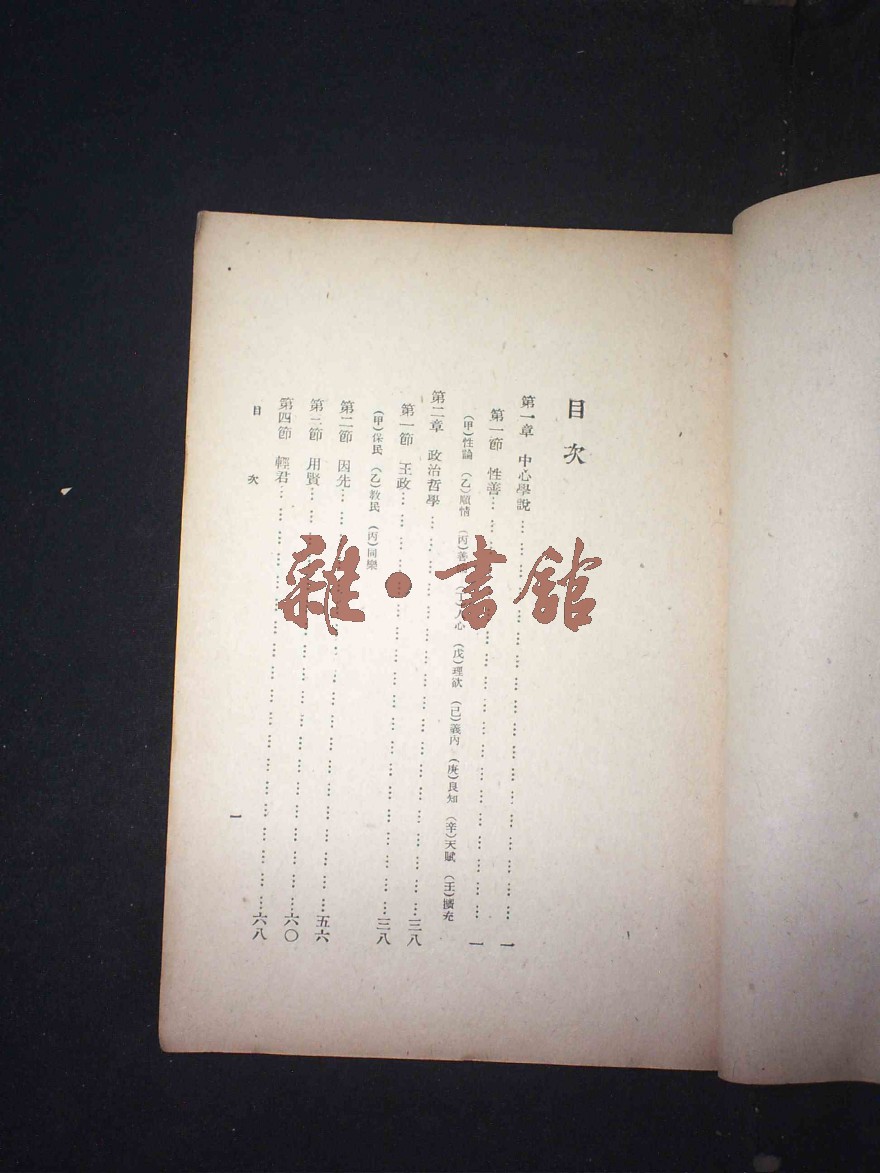 目次
第一章 中心學說……一
第一節 性善……一
(甲)性論 (乙)順情 (丙)善 (丁)人心 (戊)理欲 (己)義內 (庚)良知 (辛)天賦 (壬)擴充
第二章 政治哲學……三八
第一節 王政……三八
(甲)保民 (乙)教民 (丙)同樂
第二節 因先……五六
第三節 用賢……六〇
第四節 輕君……六八
目次
一
雜·書館